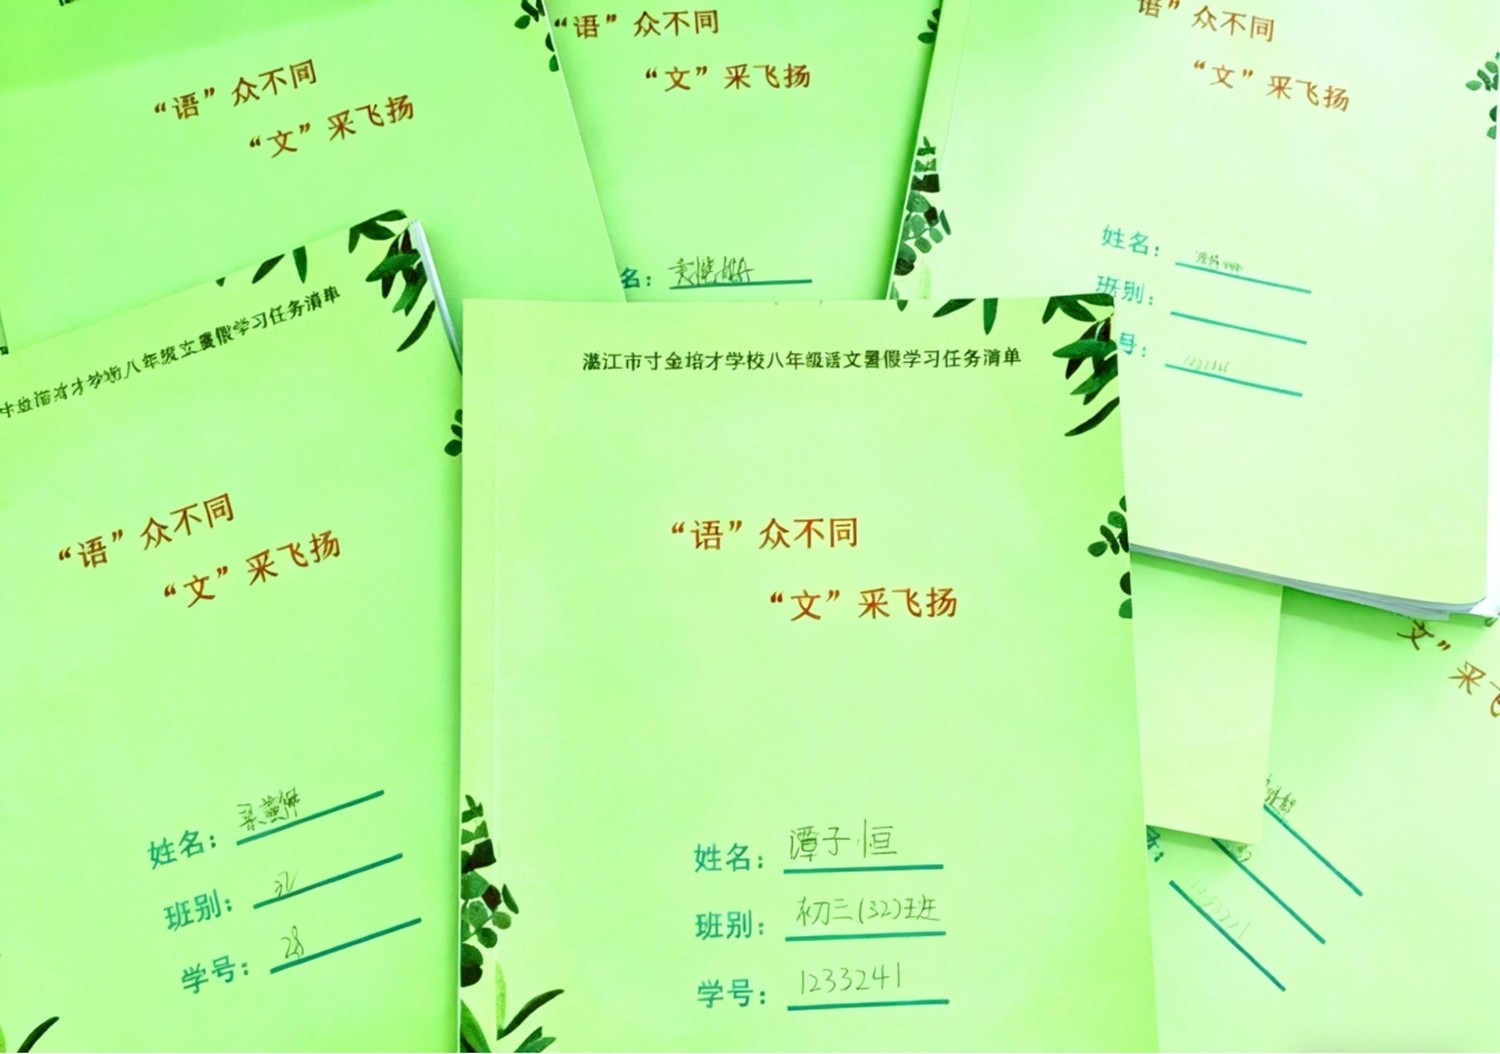 “语”众不同
“文”采飞扬
“语”众不同
“文”采飞扬
名：
语”众不同
“文”采飞扬
姓名：
班别：
号：
八年级文暑假学习任务清单
“语”众不同
“文”采飞扬
姓名：
班别：
学号：28
湛江市寸金培才学校八年级语文暑假学习任务清单
“语”众不同
“文”采飞扬
姓名：谭子恒
班别：初三(32)班
学号：1233241
文”采飞